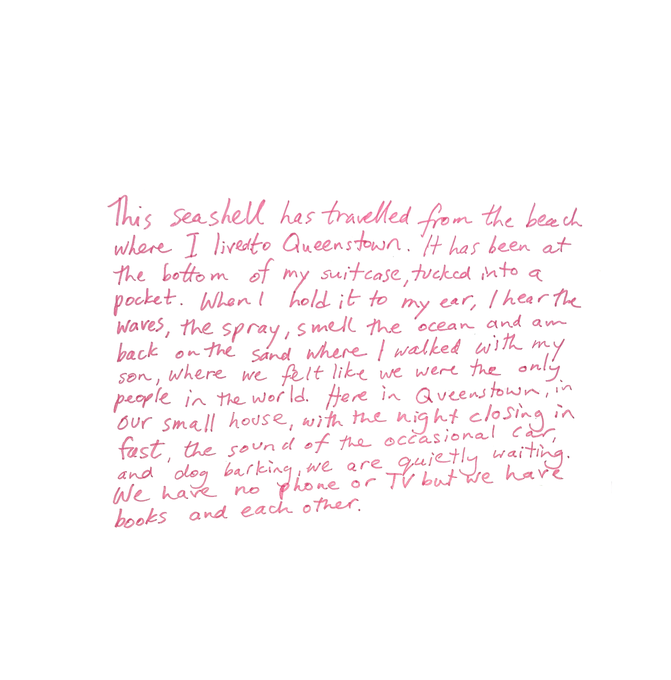 This seashell has travelled from the beach
where I livedto Queenstown. It has been at
the bottom of my suitcase, tucked into a
pocket. When I hold it to my ear, I hear the
waves, the spray, smell the ocean and am
back on the sand where I walked with my
son, where we felt like we were the only
people in the world. Here in Queenstown, in
our small house, with the night closing in
fast, the sound of the occasional car,
and dog barking, we are quietly waiting.
We have no phone or TV but we have
books and each other.